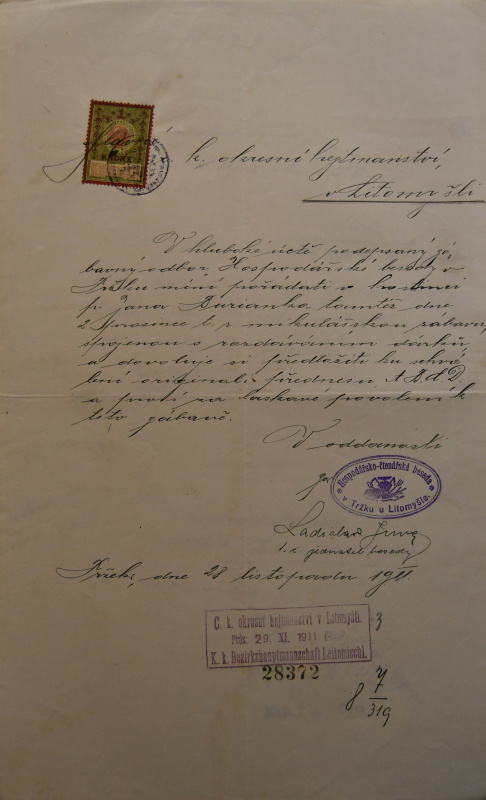 1
KRONE
Slavné k. okresní hejtmanství,
v Litomyšli
V hluboké úctě podepsaný zá-
bavný odbor Hospodářské besedy v
Tržku míní pořádati v hostinci
p. Jana Buriánka tamtéž dne
2. prosince t. r. mikulášskou zábavu,
spojenou s rozdáváním dárků
a dovoluje si předložiti ku schvá-
lení originál přednesu A. B. d. D.
a prosí za laskavé povolení k
této zábavě.
V oddanosti
Hospodářsko-čtenářská beseda
v Tržku u Litomyšle.
Ladislav
t. č. jednatel besedy
Tržek, dne 28 listopadu 1911.
C. k. okresní hejtmanství v Litomyšli.
Prás: 29. XI. 1911
K. k. Bezirkshauptmannschaft Leitomischl.
3
28372
8 7/319